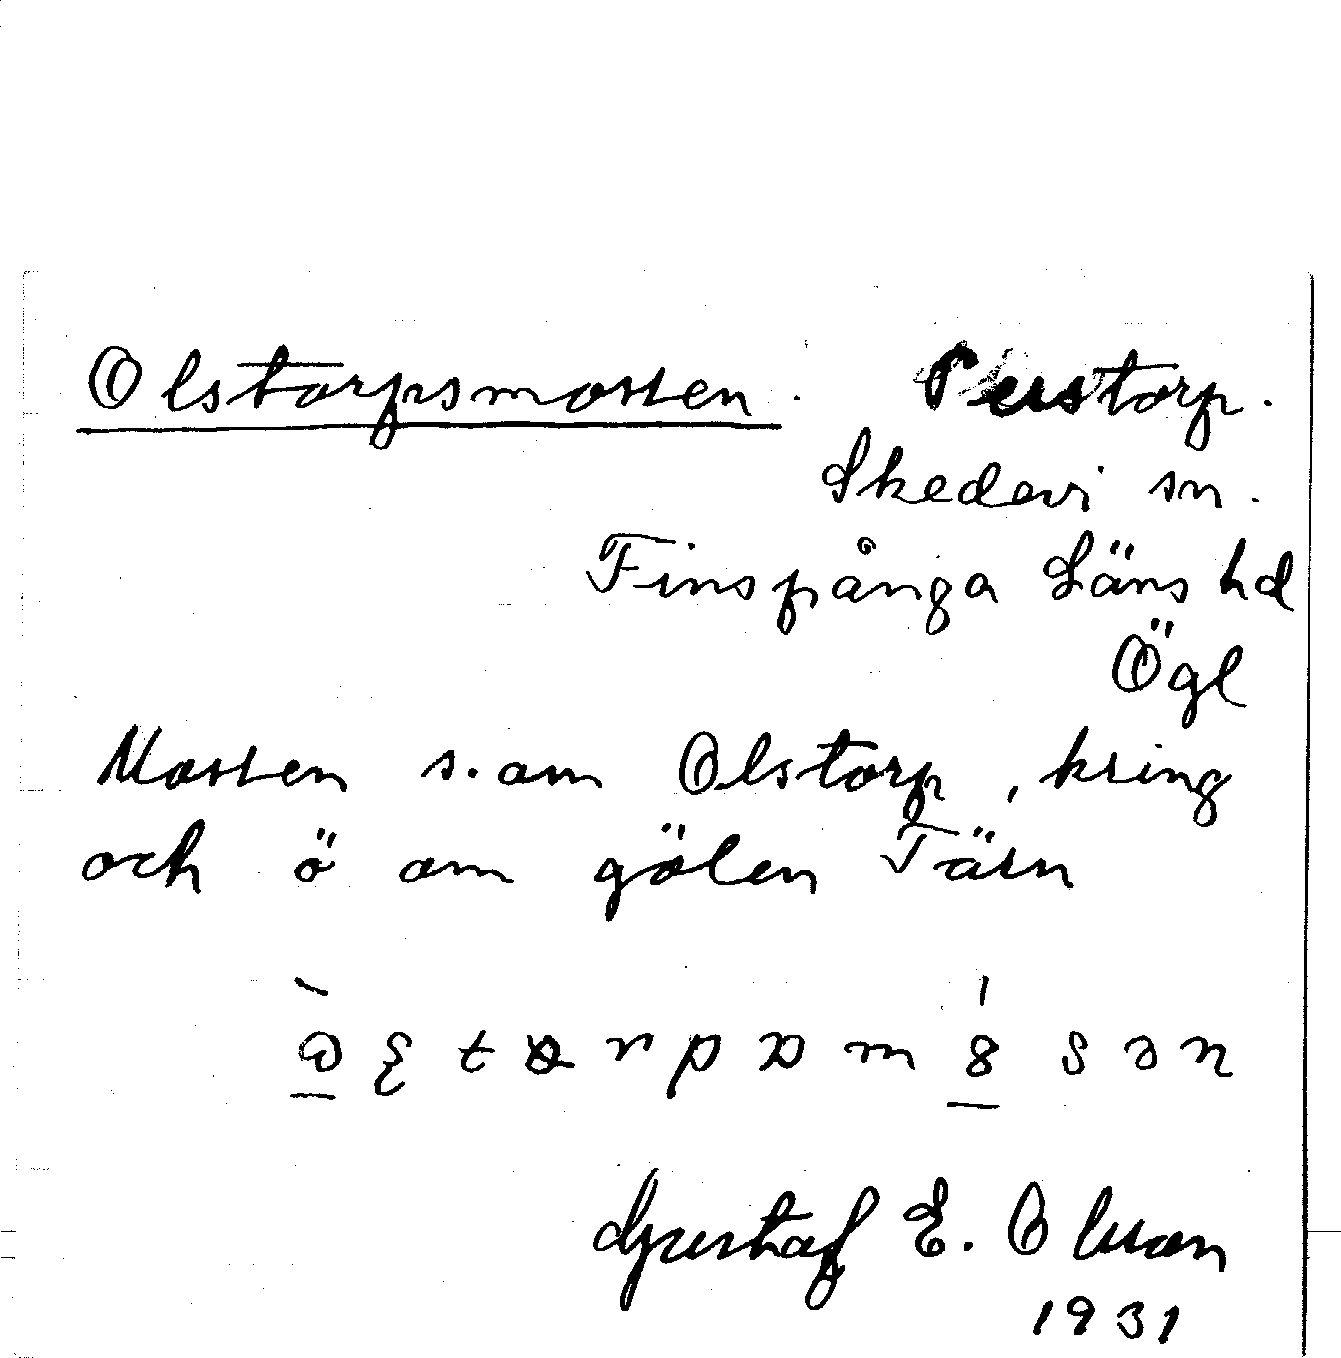 Olstorpsmossen. Perstorp.
Skedevi sn.
Finspånga Läns hd
Ögl
Mossen s. om Olstorp, kring
och ö om gölen Tärn
Gustaf E. Olsson
1931